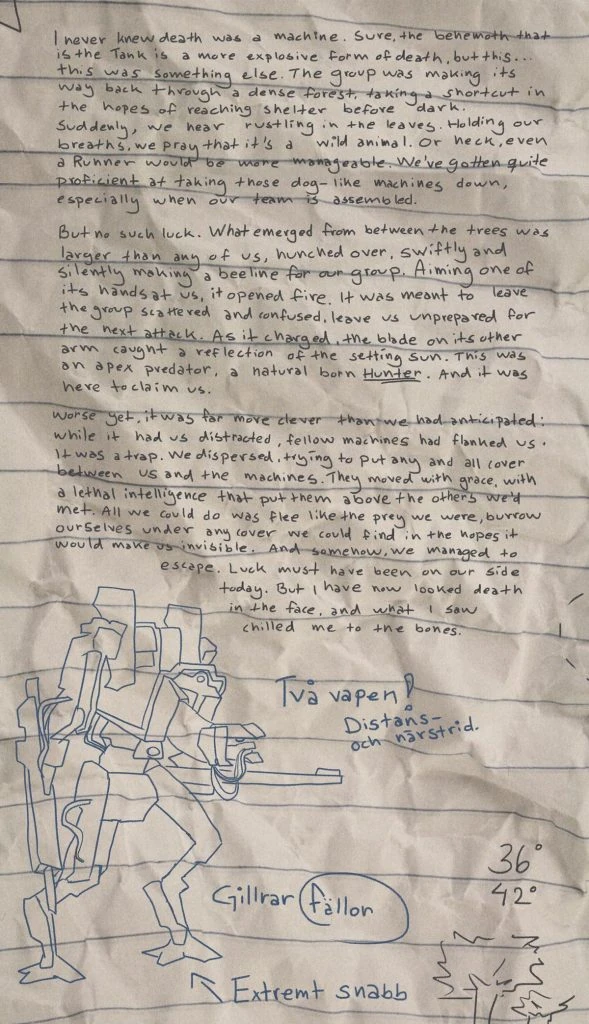 I never knew death was a machine. Sure, the behemoth that
is the Tank is a more explosive form of death, but this...
this was something else. The group was making its
way back through a dense forest, taking a shortcut in
the hopes of reaching shelter before dark.
Suddenly, we hear rustling in the leaves. Holding our
breaths, we pray that it's a wild animal. Or heck, even
a Runner would be more manageable. We've gotten quite
proficient at taking those dog-like machines down,
especially when our team is assembled.
But no such luck. What emerged from between the trees was
larger than any of us, hunched over, swiftly and
silently making a beeline for our group. Aiming one of
its hands at us, it opened fire. It was meant to leave
the group scattered and confused, leave us unprepared for
the next attack. As it charged, the blade on its other
arm caught a reflection of the setting sun. This was
an apex predator, a natural born Hunter. And it was
here to claim us.
Worse yet, it was far more clever than we had anticipated:
while it had us distracted, fellow machines had flanked us.
It was a trap. We dispersed, trying to put any and all cover
between us and the machines. They moved with grace, with
a lethal intelligence that put them above the others we'd
met. All we could do was flee like the prey we were, burrow
ourselves under any cover we could find in the hopes it
would make us invisible. And somehow, we managed to
escape. Luck must have been on our side
today. But I have now looked death
in the face, and what I saw
chilled me to the bones.
Två vapen!
Distans-
och närstrid.
36°
42°
Gillrar fällor
Extremt snabb